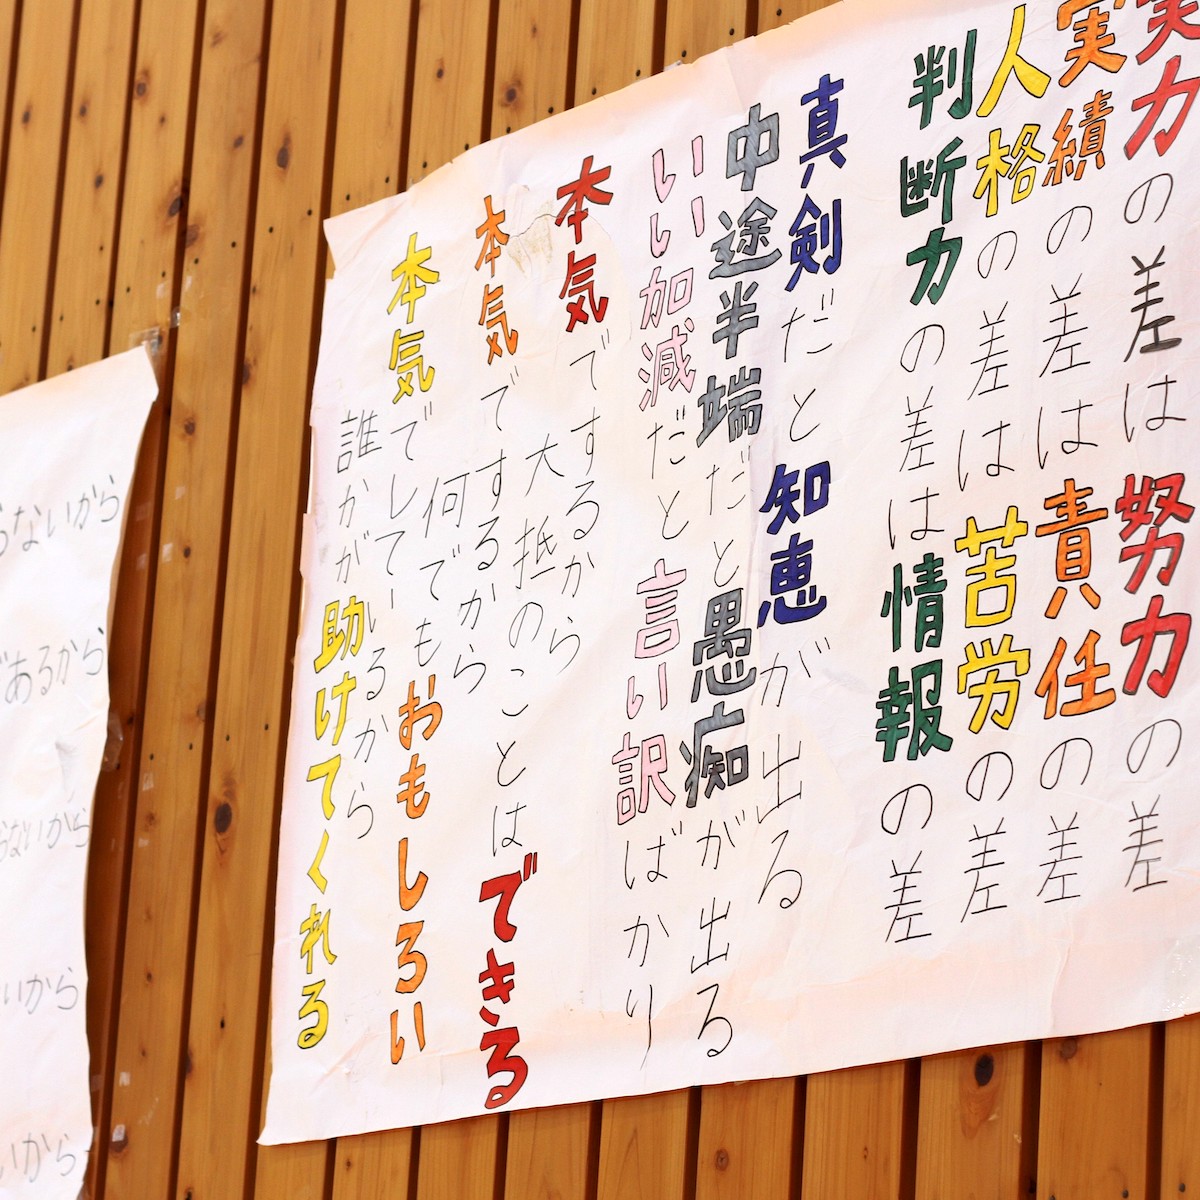 実力の差は努力の差
実績の差は責任の差
人格の差は苦労の差
判断力の差は情報の差
真剣だと知恵が出る
中途半端だと愚痴が出る
いい加減だと言い訳ばかり
本気でするから
大抵のことはできる
本気でするから
何でもおもしろい
本気でしているから
誰かが助けてくれる
らないから
であるから
らないから
いから
いから